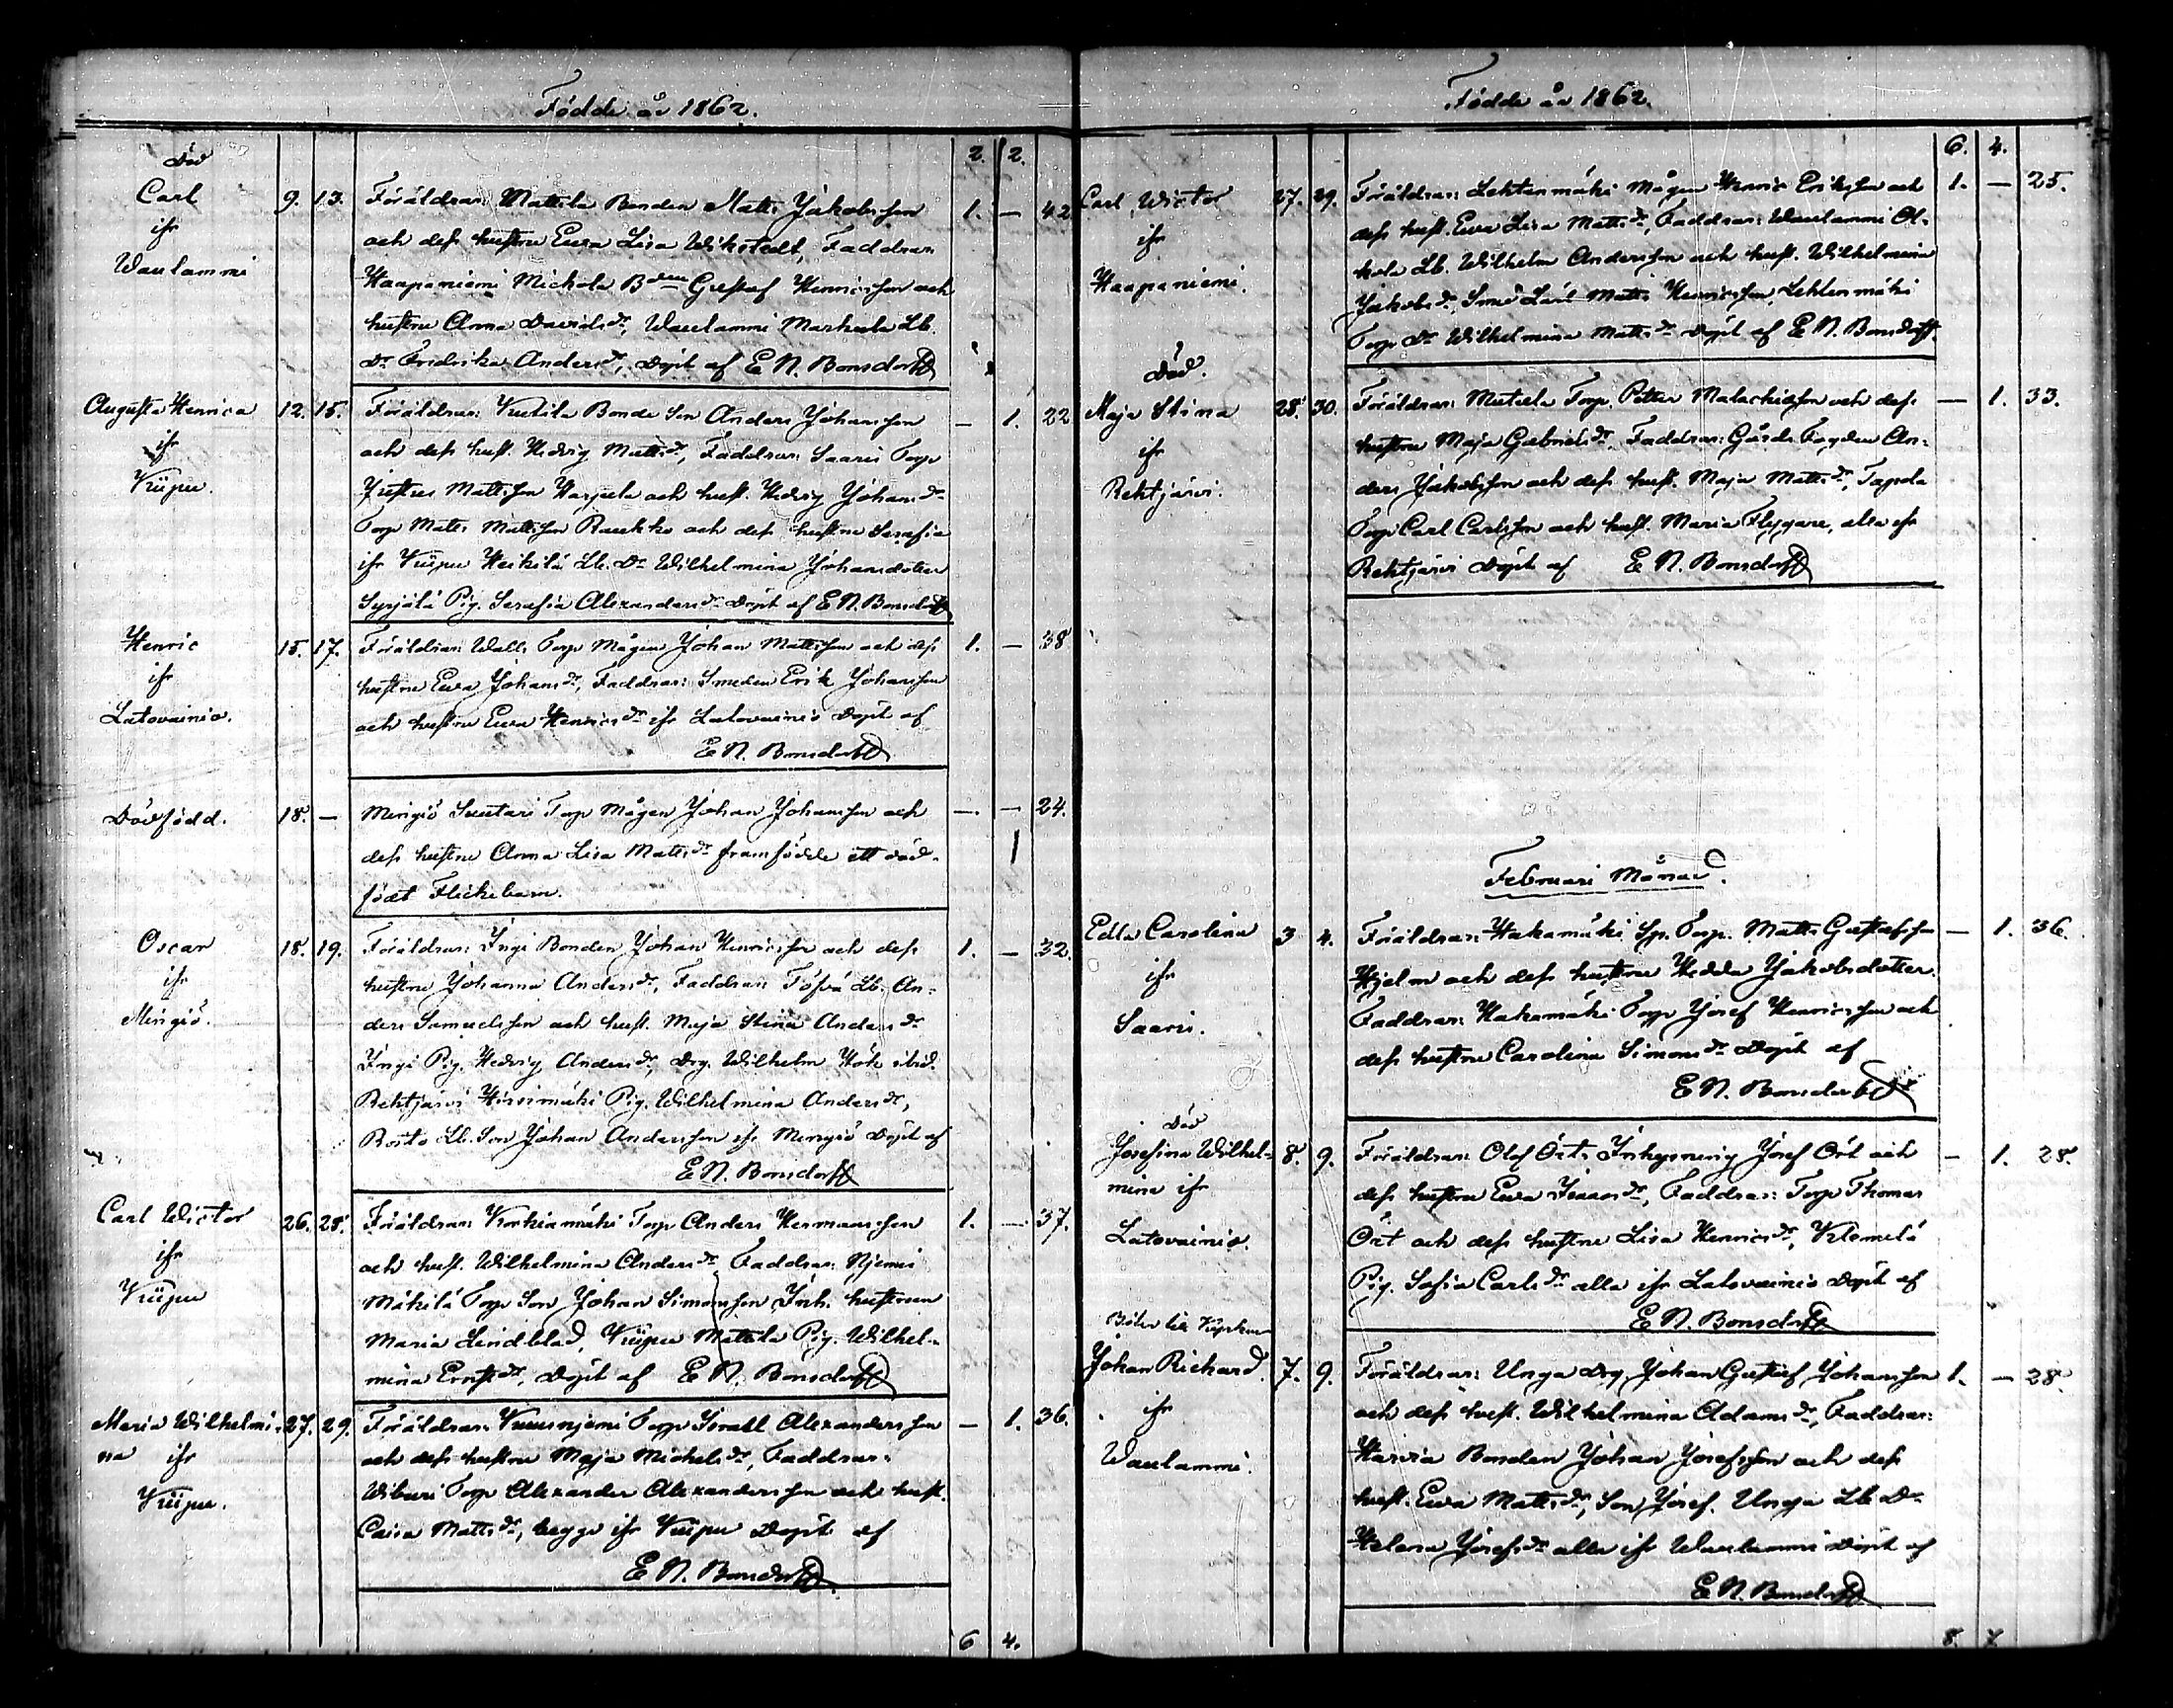 Födde år 1862.
2. 2.
Död
Carl 9. 13. Föräldrar: Mattila Bonden Matts Jakobsson 1. — 42
ifr och dess hustru Ewa Lisa Wikstedt, Faddrar:
Waulammi Haapaniemi Mickola Bden Gustaf Henricsson och
hustru Anna Davidsdr, Waulammi Markula Lb.
Dr Fredrika Andersdr, Döpt af E N. Bonsdorff
Augusta Henrica 12. 15. Föräldrar: Kuttila Bonde Son Anders Johansson — 1. 22
ifr och dess hust. Hedvig Mattsdr, Faddrar: Saaris Torp
Wiipu. Justus Mattsson Harjula och hust. Hedvig Johansdr
Torp Matts Mattsson Raukko och dess hustru Serafia
ifr Wiipu Heikilä Lb. Dr Wilhelmina Johansdotter
Syrjälä Pig. Serafia Alexandersdr Döpt af E N. Bonsdorff
Henric 15. 17. Föräldrar: Walli Torp Mågen Johan Mattsson och dess 1. — 38
ifr hustru Ewa Johansdr, Faddrar: Smeden Erik Johansson
Latovainio. och hustru Ewa Henricsdr ifr Latovainio Döpt af
E N. Bonsdorff
Dödfödd. 18. — Mengiö Suutari Torp Mågen Johan Johansson och — — 24.
dess hustru Anna Lisa Mattsdr framfödde ett död- 1
födt Flickebarn.
Oscar 18. 19. Föräldrar: Ingi Bonden Johan Henricsson och dess 1. — 32.
ifr hustru Johanna Andersdr, Faddrar: Töfvä Lb. An-
Mengiö. ders Samuelsson och hust. Maja Stina Andersdr
Ingi Pig. Hedvig Andersdr, Drg. Wilhelm Hök ibid.
Rehtjärvi Hirsimäki Pig. Wilhelmina Andersdr,
Rosto Lb. Son Johan Andersson ifr Mengiö Döpt af
E N. Bonsdorff
Carl Wictor 26. 28. Föräldrar: Korkiamäki Torp Anders Hermansson 1. — 37.
ifr och hust. Wilhelmina Andersdr Faddrar: Njemis
Wiipu Mäkilä Torp Son Johan Simonsson, Inh. hustrun
Maria Lindblad, Wiipu Mattila Pig. Wilhel-
mina Ernstdr, Döpt af E N. Bonsdorff
Maria Wilhelmi- 27. 29. Föräldrar: Kuusnjemi Torp Israel Alexandersson — 1. 36.
na ifr och dess hustru Maja Michelsdr, Faddrar:
Wiipu. Wiburi Torp Alexander Alexandersson och hust.
Caisa Mattsdr, begge ifr Wiipu Döpt af
E N. Bonsdorff
6 4.
Födde år 1862.
6. 4.
Carl Wictor 27. 29. Föräldrar: Lehtenmäki Mågen Henric Ericsson och 1. — 25.
ifr dess hust. Ewa Lisa Mattsdr, Faddrar: Waulammi Ol-
Haapaniemi. kola Lb. Wilhelm Andersson och hust. Wilhelmina
Jakobsdr, Smed Lärl Matts Henricsson, Lehtenmäki
Torp Dr Wilhelmina Mattsdr Döpt af E N. Bonsdorff.
Död.
Maja Stina 28. 30. Föräldrar: Metula Torp. Petter Malachiasson och dess — 1. 33.
ifr hustru Maja Gabrielsdr, Faddrar: Gårds Fogden An-
Rehtjärvi. ders Jakobsson och dess hust. Maja Mattsdr, Tapola
Torp Carl Carlsson och hust. Maria Flygare, alla ifr
Rehtjärvi Döpt af E N. Bonsdorff
Februari Månad.
Edla Carolina 3 4. Föräldrar: Hakamäki Sp. Torp. Matts Gustafsson — 1. 36.
ifr Hjelm och dess hustru Hedda Jakobsdotter.
Saaris. Faddrar: Hakamäki Torp Josef Henricsson och
dess hustru Carolina Simonsdr Döpt af
E N. Bonsdorff
Död
Josefina Wilhel- 8. 9. Föräldrar: Olof Örts Inhysning Josef Ört och — 1. 28.
mina ifr dess hustru Ewa Isaacsdr, Faddrar: Torp Thomas
Latovainio. Ört och dess hustru Lisa Henricsdr,
Pig. Sofia Carlsdr alla ifr Latovainio Döpt af
E N. Bonsdorff
Johan Richard. 7. 9. Föräldrar: Unga Drg Johan Gustaf Johansson 1. — 28.
ifr och dess hust. Wilhelmina Adamsdr, Faddrar:
Waulammi. Harvia Bonden Johan Josefsson och dess
hust. Ewa Mattsdr, Son Josef. Unga Lb Dr
Helena Josefsdr alla ifr Waulammi Döpt af
E N. Bonsdorff
8. 7.